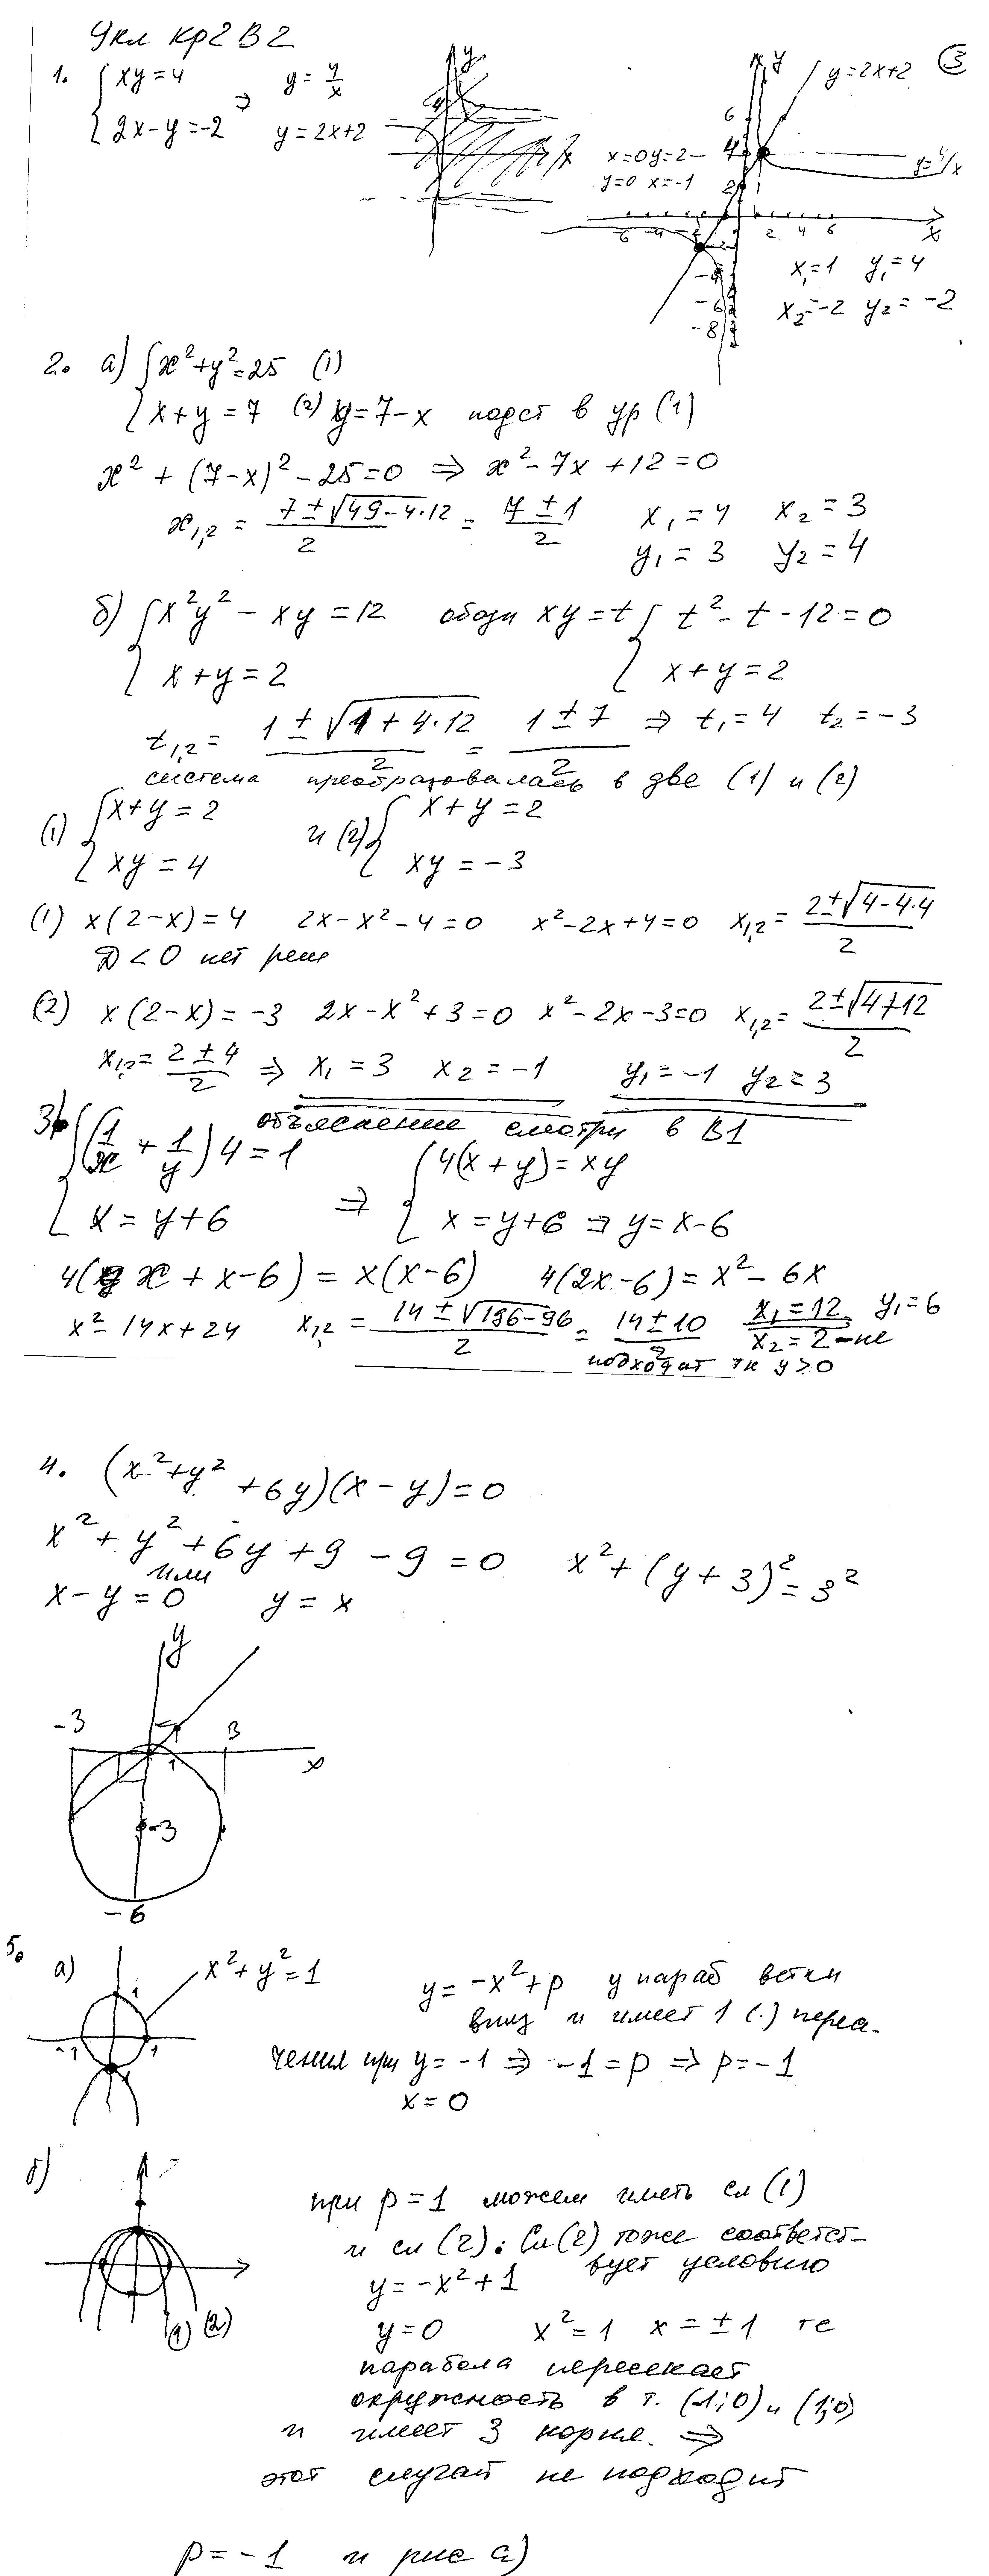 9кл Кр2 В2
③
1. { xy=4 ⇒ y=4/x
{ 2x-y=-2 y=2x+2
y
y=2x+2
x=0 y=2
y=0 x=-1
y=4/x
6
4
2
-6 -4 -2 1 2 4 6 x
-2
-4
-6
-8
x₁=1 y₁=4
x₂=-2 y₂=-2
2. а) { x²+y²=25 (1)
{ x+y=7 (2) y=7-x подст в ур (1)
x²+(7-x)²-25=0 ⇒ x²-7x+12=0
x₁,₂ = (7±√(49-4·12))/2 = (7±1)/2 x₁=4 x₂=3
y₁=3 y₂=4
б) { x²y²-xy=12 обозн xy=t { t²-t-12=0
{ x+y=2 { x+y=2
t₁,₂ = (1±√(1+4·12))/2 = (1±7)/2 ⇒ t₁=4 t₂=-3
система преобразовалась в две (1) и (2)
(1) { x+y=2 и (2) { x+y=2
{ xy=4 { xy=-3
(1) x(2-x)=4 2x-x²-4=0 x²-2x+4=0 x₁,₂ = (2±√(4-4·4))/2
D<0 нет реш
(2) x(2-x)=-3 2x-x²+3=0 x²-2x-3=0 x₁,₂ = (2±√(4+12))/2
x₁,₂ = (2±4)/2 ⇒ x₁=3 x₂=-1 y₁=-1 y₂=3
объяснение смотри в В1
3) { (1/x+1/y)4=1 ⇒ { 4(x+y)=xy
{ x=y+6 { x=y+6 ⇒ y=x-6
4(x+x-6)=x(x-6) 4(2x-6)=x²-6x
x²-14x+24 x₁,₂ = (14±√(196-96))/2 = (14±10)/2 x₁=12 y₁=6
x₂=2-не
подходит тк y>0
4. (x²+y²+6y)(x-y)=0
x²+y²+6y+9-9=0 x²+(y+3)²=3²
или
x-y=0 y=x
y
-3 3
1 x
-3
-6
5.
а) x²+y²=1 y=-x²+p у параб ветки
вниз и имеет 1 (·) пересе-
чения при y=-1 ⇒ -1=p ⇒ p=-1
x=0
1
-1 1
б)
при p=1 можем иметь сл (1)
и сл (2). Сл (2) тоже соответст-
вует условию
y=-x²+1
(1) (2)
y=0 x²=1 x=±1 те
парабола пересекает
окружность в т. (-1;0) и (1;0)
и имеет 3 корня. ⇒
этот случай не подходит
p=-1 и рис а)